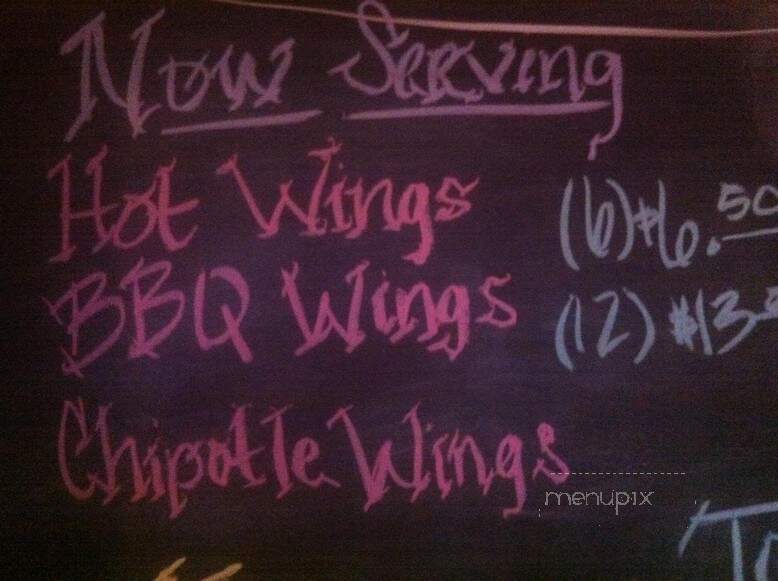 Now Serving
Hot Wings (6) $6.50
BBQ Wings (12) $13
Chipotle Wings
menupix